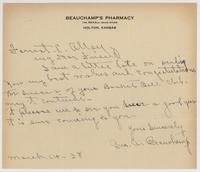 BEAUCHAMP'S PHARMACY
THE REXALL DRUG STORE
HOLTON, KANSAS
Forrest C. Allen
my Dear Friend
I am a little late on giving
you my best wishes and congratulations
for success of your Basket Ball Club.
may it continue.
it pleases me to see you have a good year
it is sure coming to you.
Yours Sincerely
Beauchamp
March 14 - 38